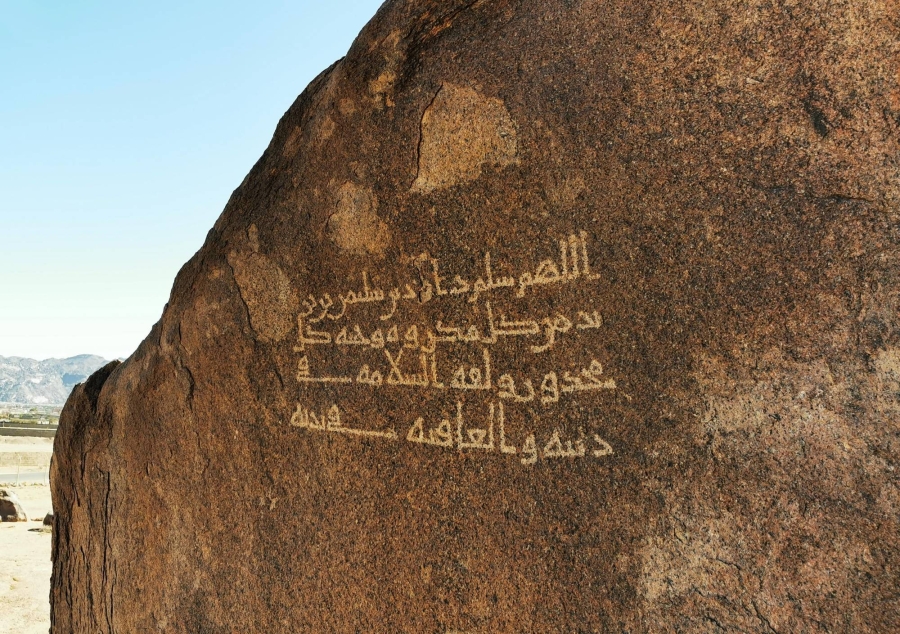 اللهم سلم داود بن سليمن بن يز
يد من كل مكروه ونجه كل
محذور ولقه السلامه في
دينه والعافيه في بدنه